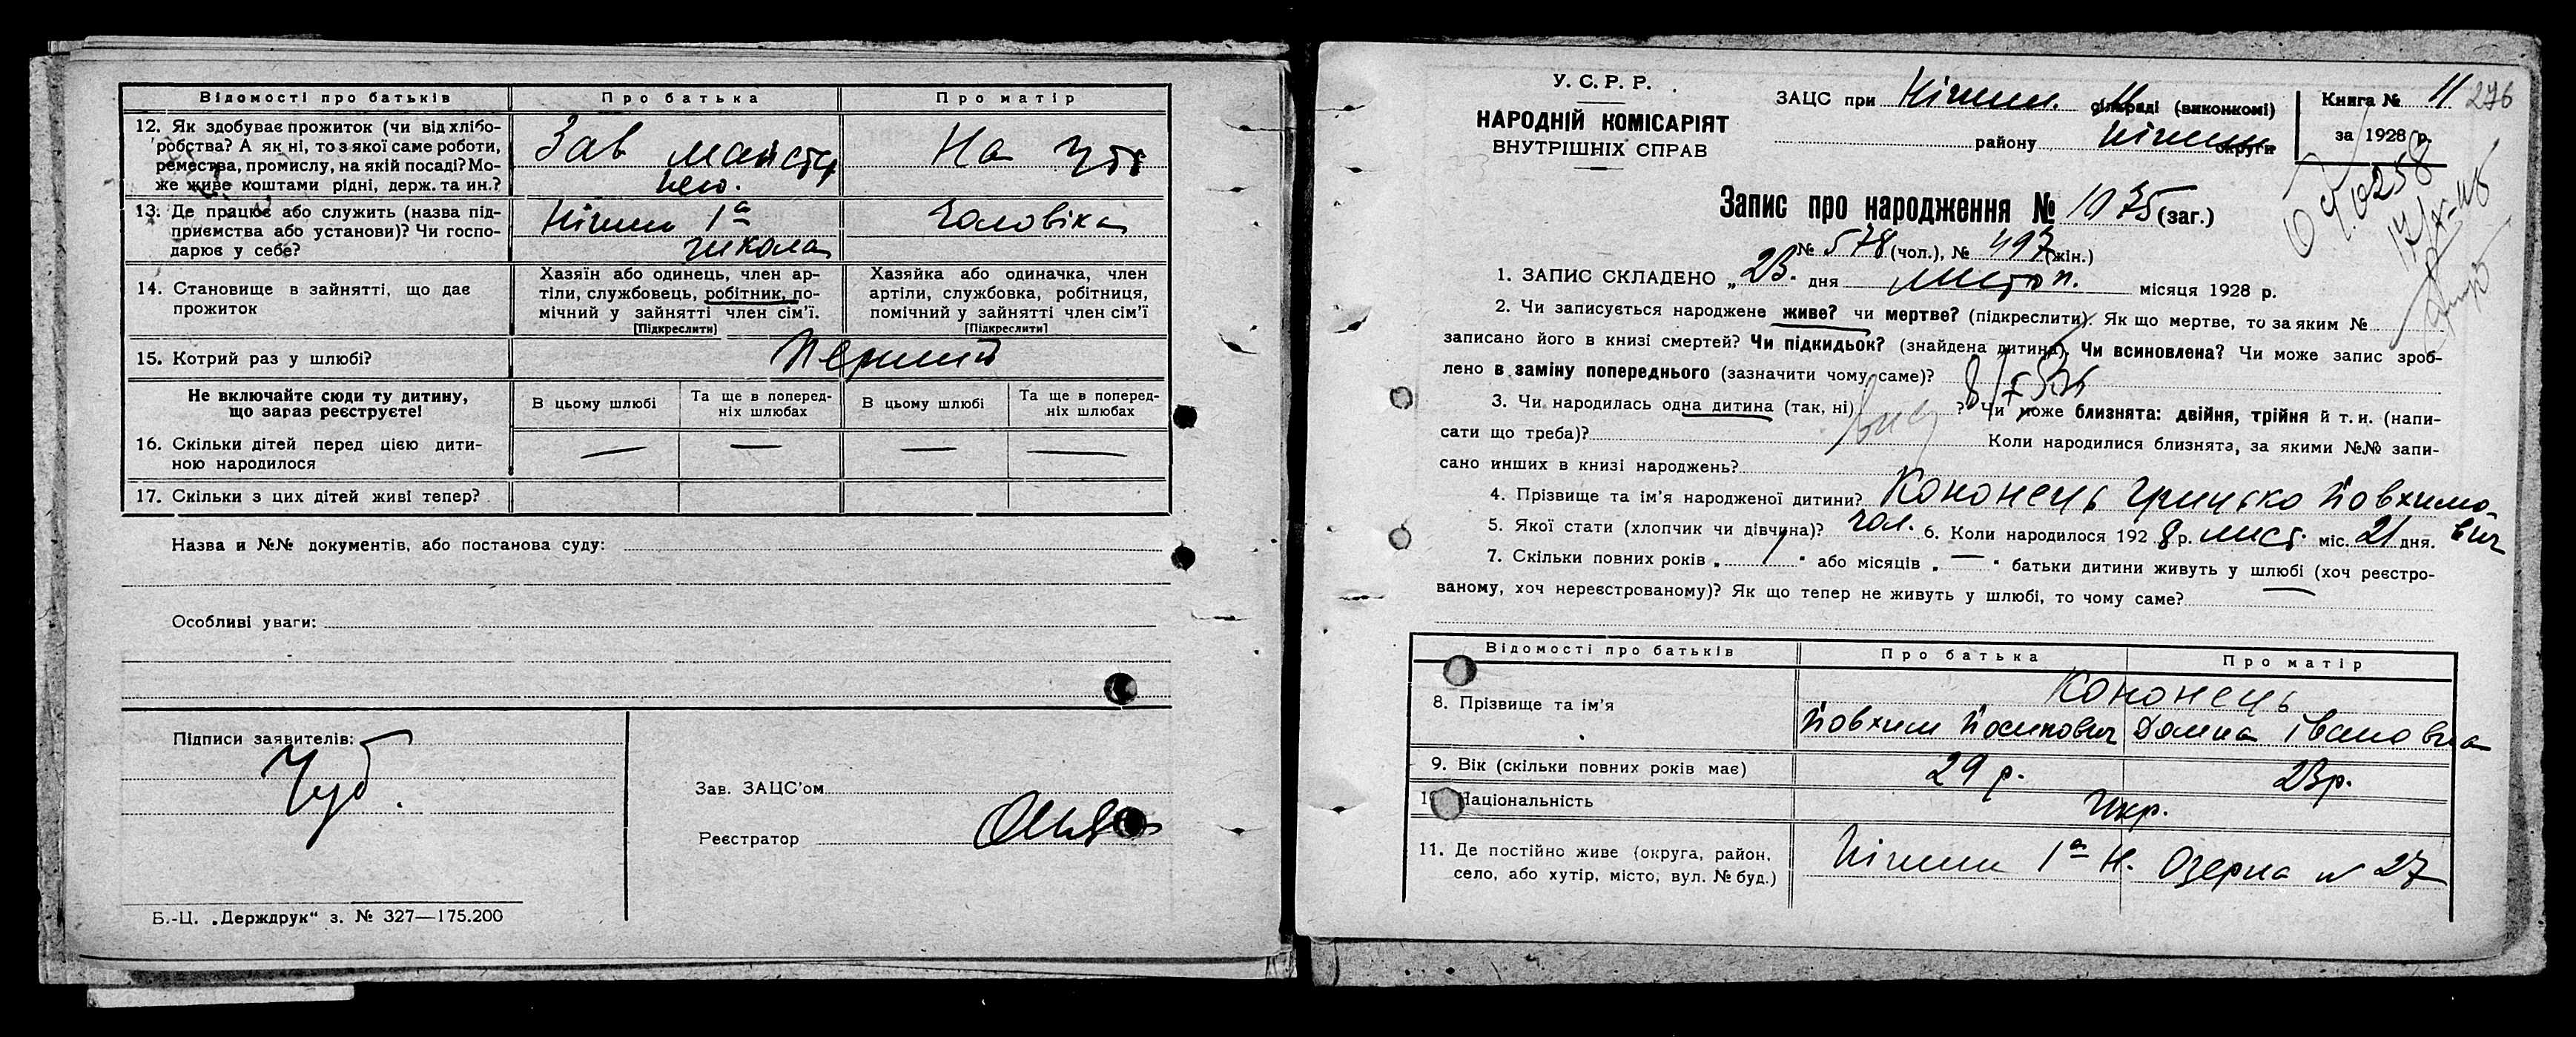 Відомості про батьків Про батька Про матір
12. Як здобуває прожиток (чи від хлібо-
робства? А як ні, то з якої саме роботи,
ремества, промислу, на якій посаді? Мо-
же живе коштами рідні, держ. та ин.?
Зав майстер На утр
нею.
13. Де працює або служить (назва під-
приємства або установи)? Чи госпо-
дарює у себе?
Ніжин 1а чоловіка
школа
14. Становище в зайнятті, що дає
прожиток
Хазяїн або одинець, член ар-
тілі, службовець, робітник, по-
мічний у зайнятті член сім'ї.
[Підкреслити]
Хазяйка або одиначка, член
артілі, службовка, робітниця,
помічний у зайнятті член сім'ї
[Підкреслити]
15. Котрий раз у шлюбі? Перший
Не включайте сюди ту дитину,
що зараз реєструєте!
В цьому шлюбі
Та ще в поперед-
ніх шлюбах
В цьому шлюбі
Та ще в поперед-
ніх шлюбах
16. Скільки дітей перед цією дити-
ною народилося
— — — —
17. Скільки з цих дітей живі тепер?
Назва и №№ документів, або постанова суду:
Особливі уваги:
Підписи заявителів:
Чуб.
Зав. ЗАЦС'ом
Реєстратор
Б.-Ц. „Держдрук“ з. № 327—175.200
У. С. Р. Р.
НАРОДНІЙ КОМІСАРІЯТ
ВНУТРІШНІХ СПРАВ
ЗАЦС при Ніжин. сільраді (виконкомі)
району Ніжин округи
Книга № 11 276
за 1928 р.
Запис про народження № 1075 (заг.)
№ 578 (чол.), № 497 (жін.)
1. ЗАПИС СКЛАДЕНО „23“ дня листоп. місяця 1928 р.
2. Чи записується народжене живе? чи мертве? (підкреслити). Як що мертве, то за яким №
записано його в книзі смертей? Чи підкидьок? (знайдена дитина). Чи всиновлена? Чи може запис зроб-
лено в заміну попереднього (зазначити чому саме)?
3. Чи народилась одна дитина (так, ні) ? Чи може близнята: двійня, трійня й т. и. (напи-
сати що треба)? Коли народилися близнята, за якими №№ запи-
сано инших в книзі народжень?
4. Прізвище та ім'я народженої дитини? Кононець Грицько Йовхимо-
вич
5. Якої стати (хлопчик чи дівчина)? чол. 6. Коли народилося 1928 р. лист. міс. 21 дня.
7. Скільки повних років „ 1 “ або місяців „ — “ батьки дитини живуть у шлюбі (хоч реєстро-
ваному, хоч нереєстрованому)? Як що тепер не живуть у шлюбі, то чому саме?
Відомості про батьків Про батька Про матір
8. Прізвище та ім'я
Кононець
Йовхим Йосипович Домна Івановна
9. Вік (скільки повних років має) 29 р. 23 р.
10. Національність Укр.
11. Де постійно живе (округа, район,
село, або хутір, місто, вул. № буд.)
Ніжин 1а Н. Озерна № 27